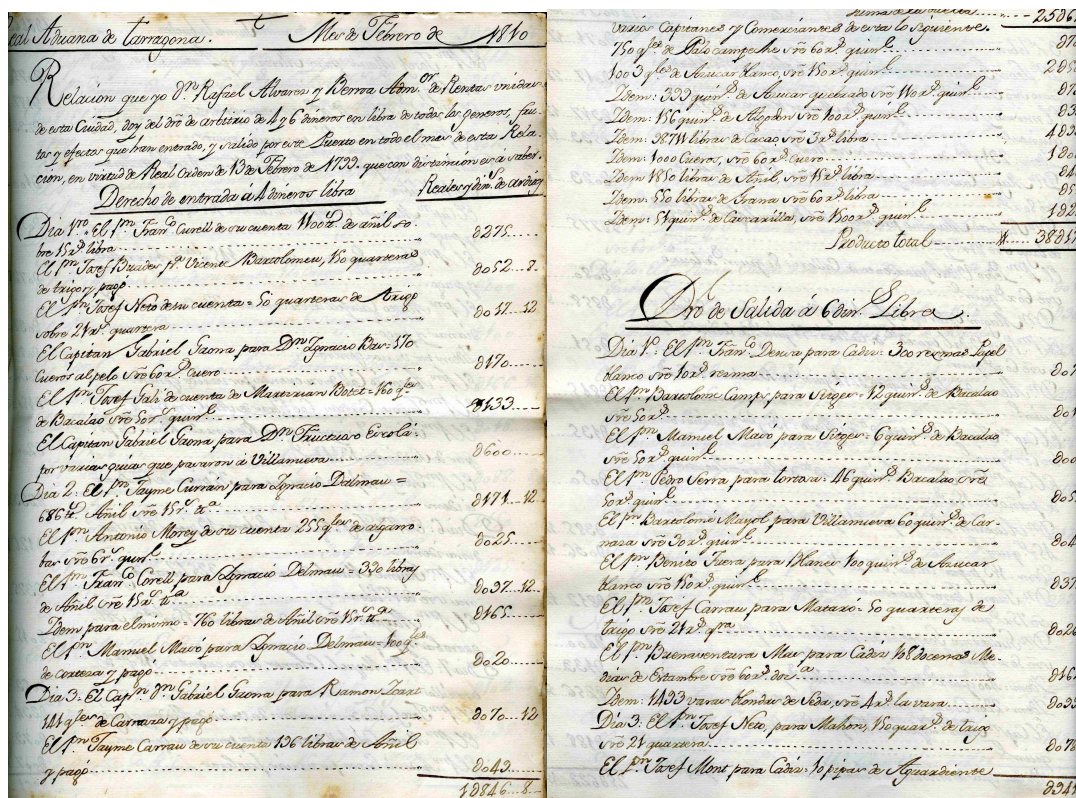 Real Aduana de Tarragona. Mes de Febrero de 1810
Relacion que yo Dn. Rafael Alvarez y Admor. de Rentas unidas
de esta Ciudad, doy del dro de arbitrio de 4 y 6 dineros en libra de todos los generos, fru-
tos y efectos que han entrado, y salido por este Puerto en todo el mes de esta Rela-
cion, en virtud de Real Orden de 13 de Febrero de 1799. que con distincion es á saber.
Derecho de entrada á 4 dineros libra
Dia 1ro. El Pn. Franco. Curell de su cuenta 1100 de añil so-
bre 15 rs. libra
El Pn. Josef Bruder pa. Vicente Bartolomeu, 150 quarteras
de trigo y pagó 8052..8.
El Pn. Josef Neto de su cuenta = 50 quarteras de trigo
sobre 21 rs. quartera 8012..12
El Capitan Gabriel Gaona para Dn. Ignacio = 170
Cueros al pelo sre 60 rs. Cuero 8170
El Pn. Josef Sali de cuenta de Botet = 160 qqs.
de Bacalao sre 50 rs. quinl. 8133
El Capitan Gabriel Gaona para Dn. Fructuoso
por varias guias que pasaron á Villanueva 8600
Dia 2. El Pn. Jayme Currán para Ignacio Dalmau =
686 Añil sre 15 rs. 8171..12
El Pn. Antonio Morey de su cuenta 255 qqs. de algarro
bas sre 6 rs. quinl. 8025
El Pn. Franco. Corell para Ignacio Delmau = 390 libras
de Añil sre 15 rs. 8097..12
Idem para el mismo = 760 libras de Añil sre 15 rs. 8165
El Pn. Manuel Macó para Ignacio Delmau = 100 qqs.
de corteza y pagó 8020
Dia 3. El Capn. Dn. Gabriel Gaona para Ramon
141 qqs. de Carnaza y pagó 8070..12
El Pn. Jayme Carrau de su cuenta 196 libras de Añil
y pagó 8049
10846..8
2586
varios Capitanes y Comerciantes de esta lo siguiente.
750 qqs. de Palo campeche sre 60 rs. quinl.
1003 qqs. de Azucar blanco, sre 150 rs. quinl.
Idem: 399 quins. de Azucar quebrado sre 110 rs. quinl.
Idem: 156 quins. de Algodon sre 100 rs. quinl.
Idem: 38711 libras de Cacao sre 3 rs. libra
Idem: 1000 Cueros, sre 60 rs. Cuero
Idem 1850 libras de Añil, sre 15 rs. libra
Idem: 550 libras de Grana sre 60 rs. libra
Idem: 51 quins. de Cascarilla, sre 1100 rs. quinl.
Producto total 3881
Dro. de Salida á 6 din.s Libra.
Dia 1o. El Pn. Franco. para Cadiz = 300 resmas Papel
blanco sre 10 rs. resma
El Pn. Bartolome Camps para Sitges = 12 quins. de Bacalao
sre 50 rs.
El Pn. Manuel Macó para Sitges = 6 quins. de Bacalao
sre 50 rs. quinl.
El Pn. Pedro Serra para tortosa = 46 quins. Bacalao sre
50 rs. quinl.
El Pn. Bartolomé Mayol para Villanueva 60 quins. de Car-
naza sre 30 rs. quinl.
El Pn. Benito para Blanes 100 quins. de Azucar
blanco sre 150 rs. quinl.
El Pn. Josef Carrau para Mataró = 50 quarteras de
trigo sre 21 rs. qra
El Pn. Buenaventura Mas para Cadiz 108 docenas Me-
dias de Estambre sre 60 rs. doza
Idem: 1493 varas blondas de Seda, sre 4 rs. la vara
Dia 3. El Pn. Josef Neto, para Mahon, 15 quars. de trigo
sre 21 quartera
El Pn. Josef Mont para Cadiz = 10 pipas de Aguardiente